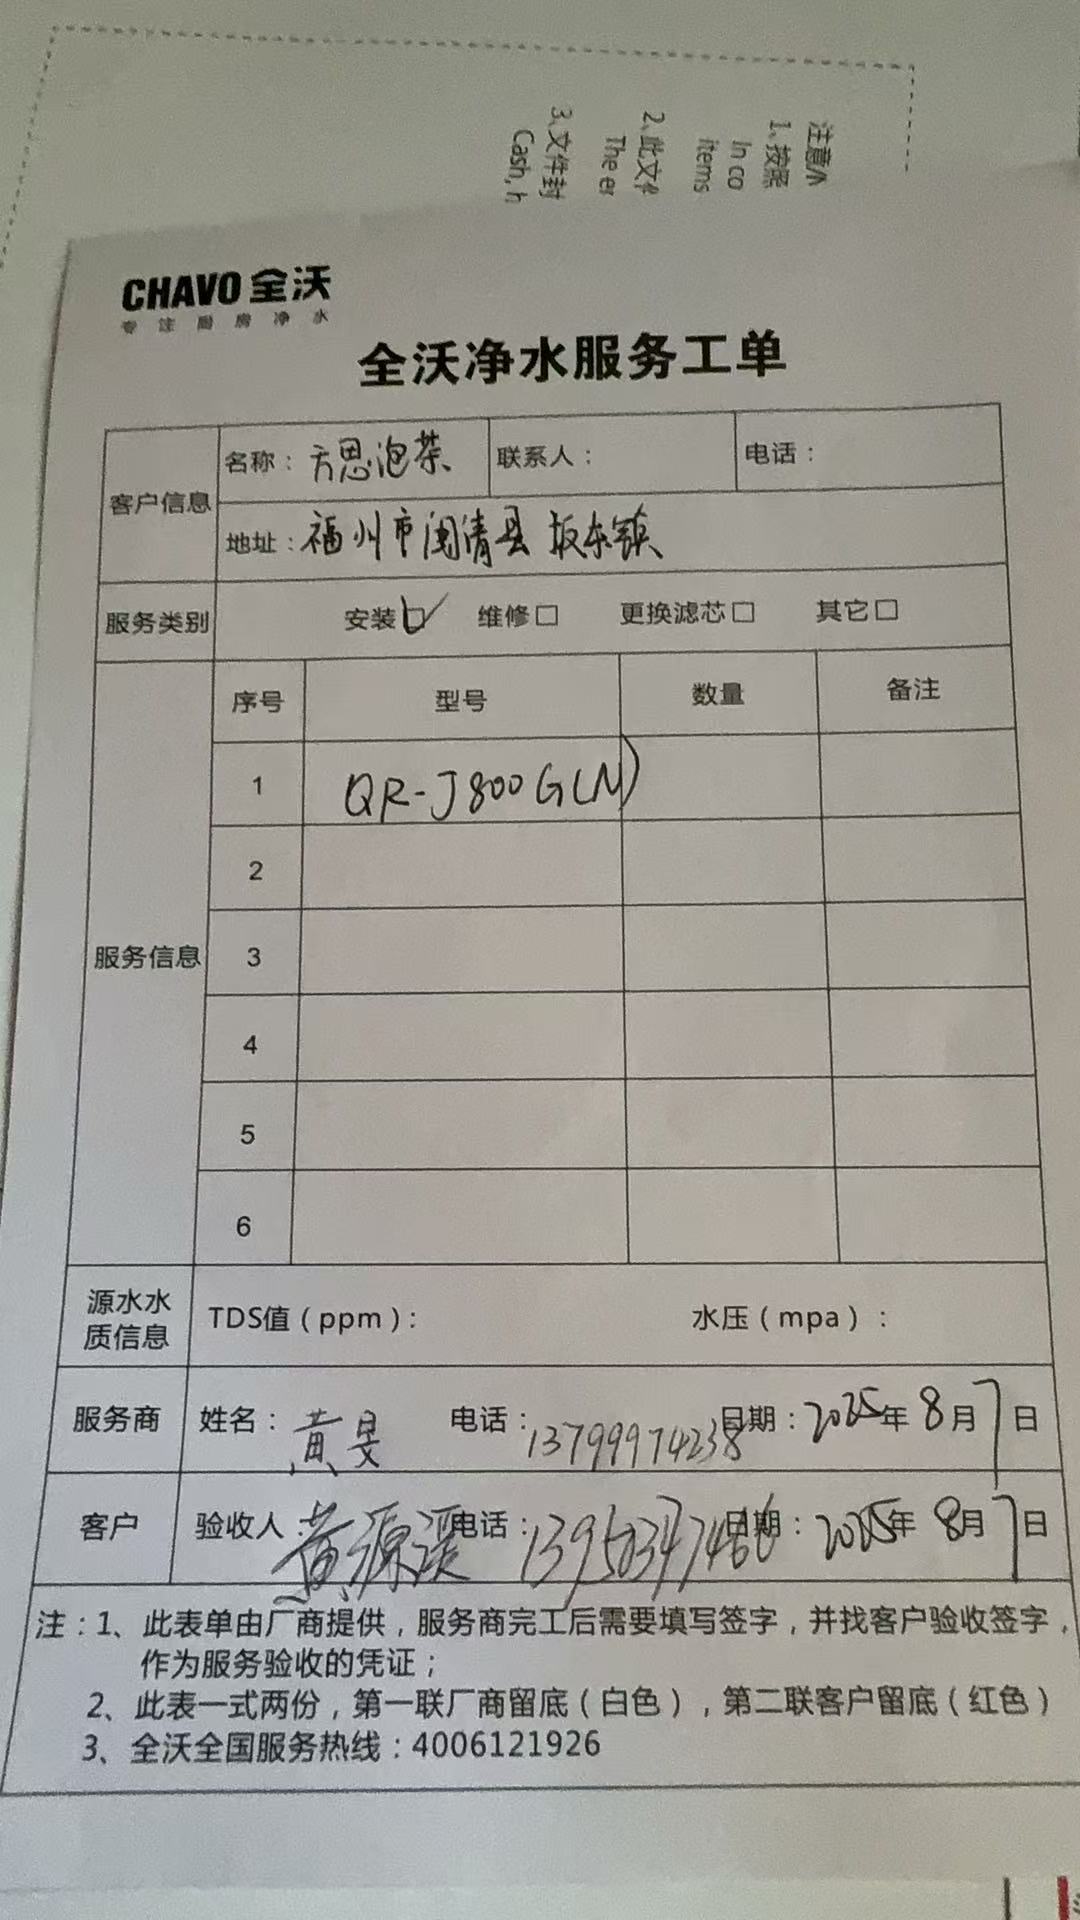 注意
1、按照
In co
items
2、此文件
The er
3、文件封
Cash, h
CHAVO 全沃
专注厨房净水
全沃净水服务工单
客户信息 名称：方恩泡茶 联系人： 电话：
地址：福州市闽清县坂东镇
服务类别 安装☑ 维修□ 更换滤芯□ 其它□
服务信息 序号 型号 数量 备注
1 QR-J800G(N)
2
3
4
5
6
源水水质信息 TDS值（ppm）： 水压（mpa）：
服务商 姓名：黄旻 电话：13799974238 日期：2025年8月7日
客户 验收人：黄源溪 电话： 日期：2025年8月7日
注：1、此表单由厂商提供，服务商完工后需要填写签字，并找客户验收签字，
作为服务验收的凭证；
2、此表一式两份，第一联厂商留底（白色），第二联客户留底（红色）
3、全沃全国服务热线：4006121926